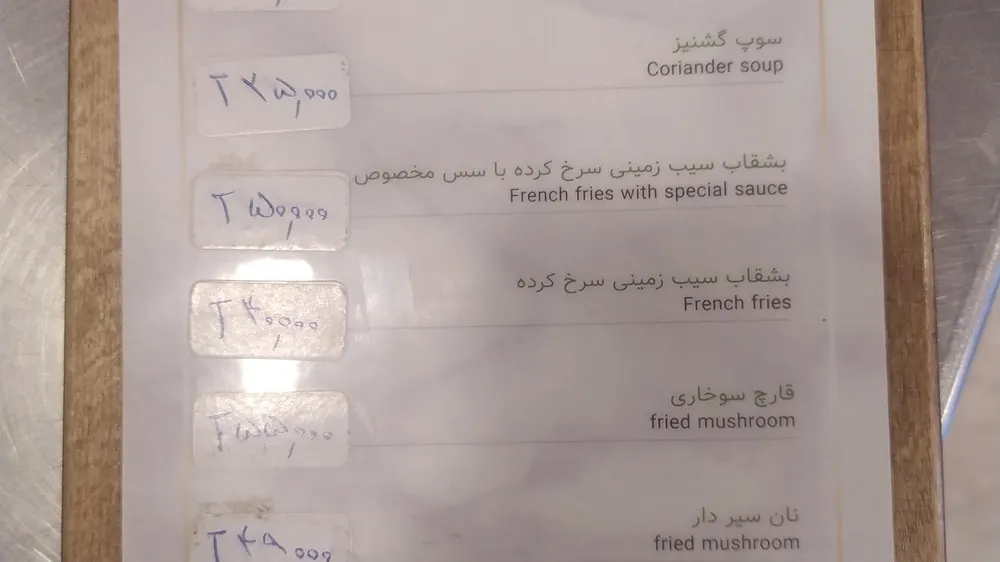 سوپ گشنیز
Coriander soup
T ۴۵,۰۰۰
بشقاب سیب زمینی سرخ کرده با سس مخصوص
French fries with special sauce
T ۵۰,۰۰۰
بشقاب سیب زمینی سرخ کرده
French fries
T ۴۰,۰۰۰
قارچ سوخاری
fried mushroom
T ۵۵,۰۰۰
نان سیر دار
fried mushroom
T ۴۹,۰۰۰